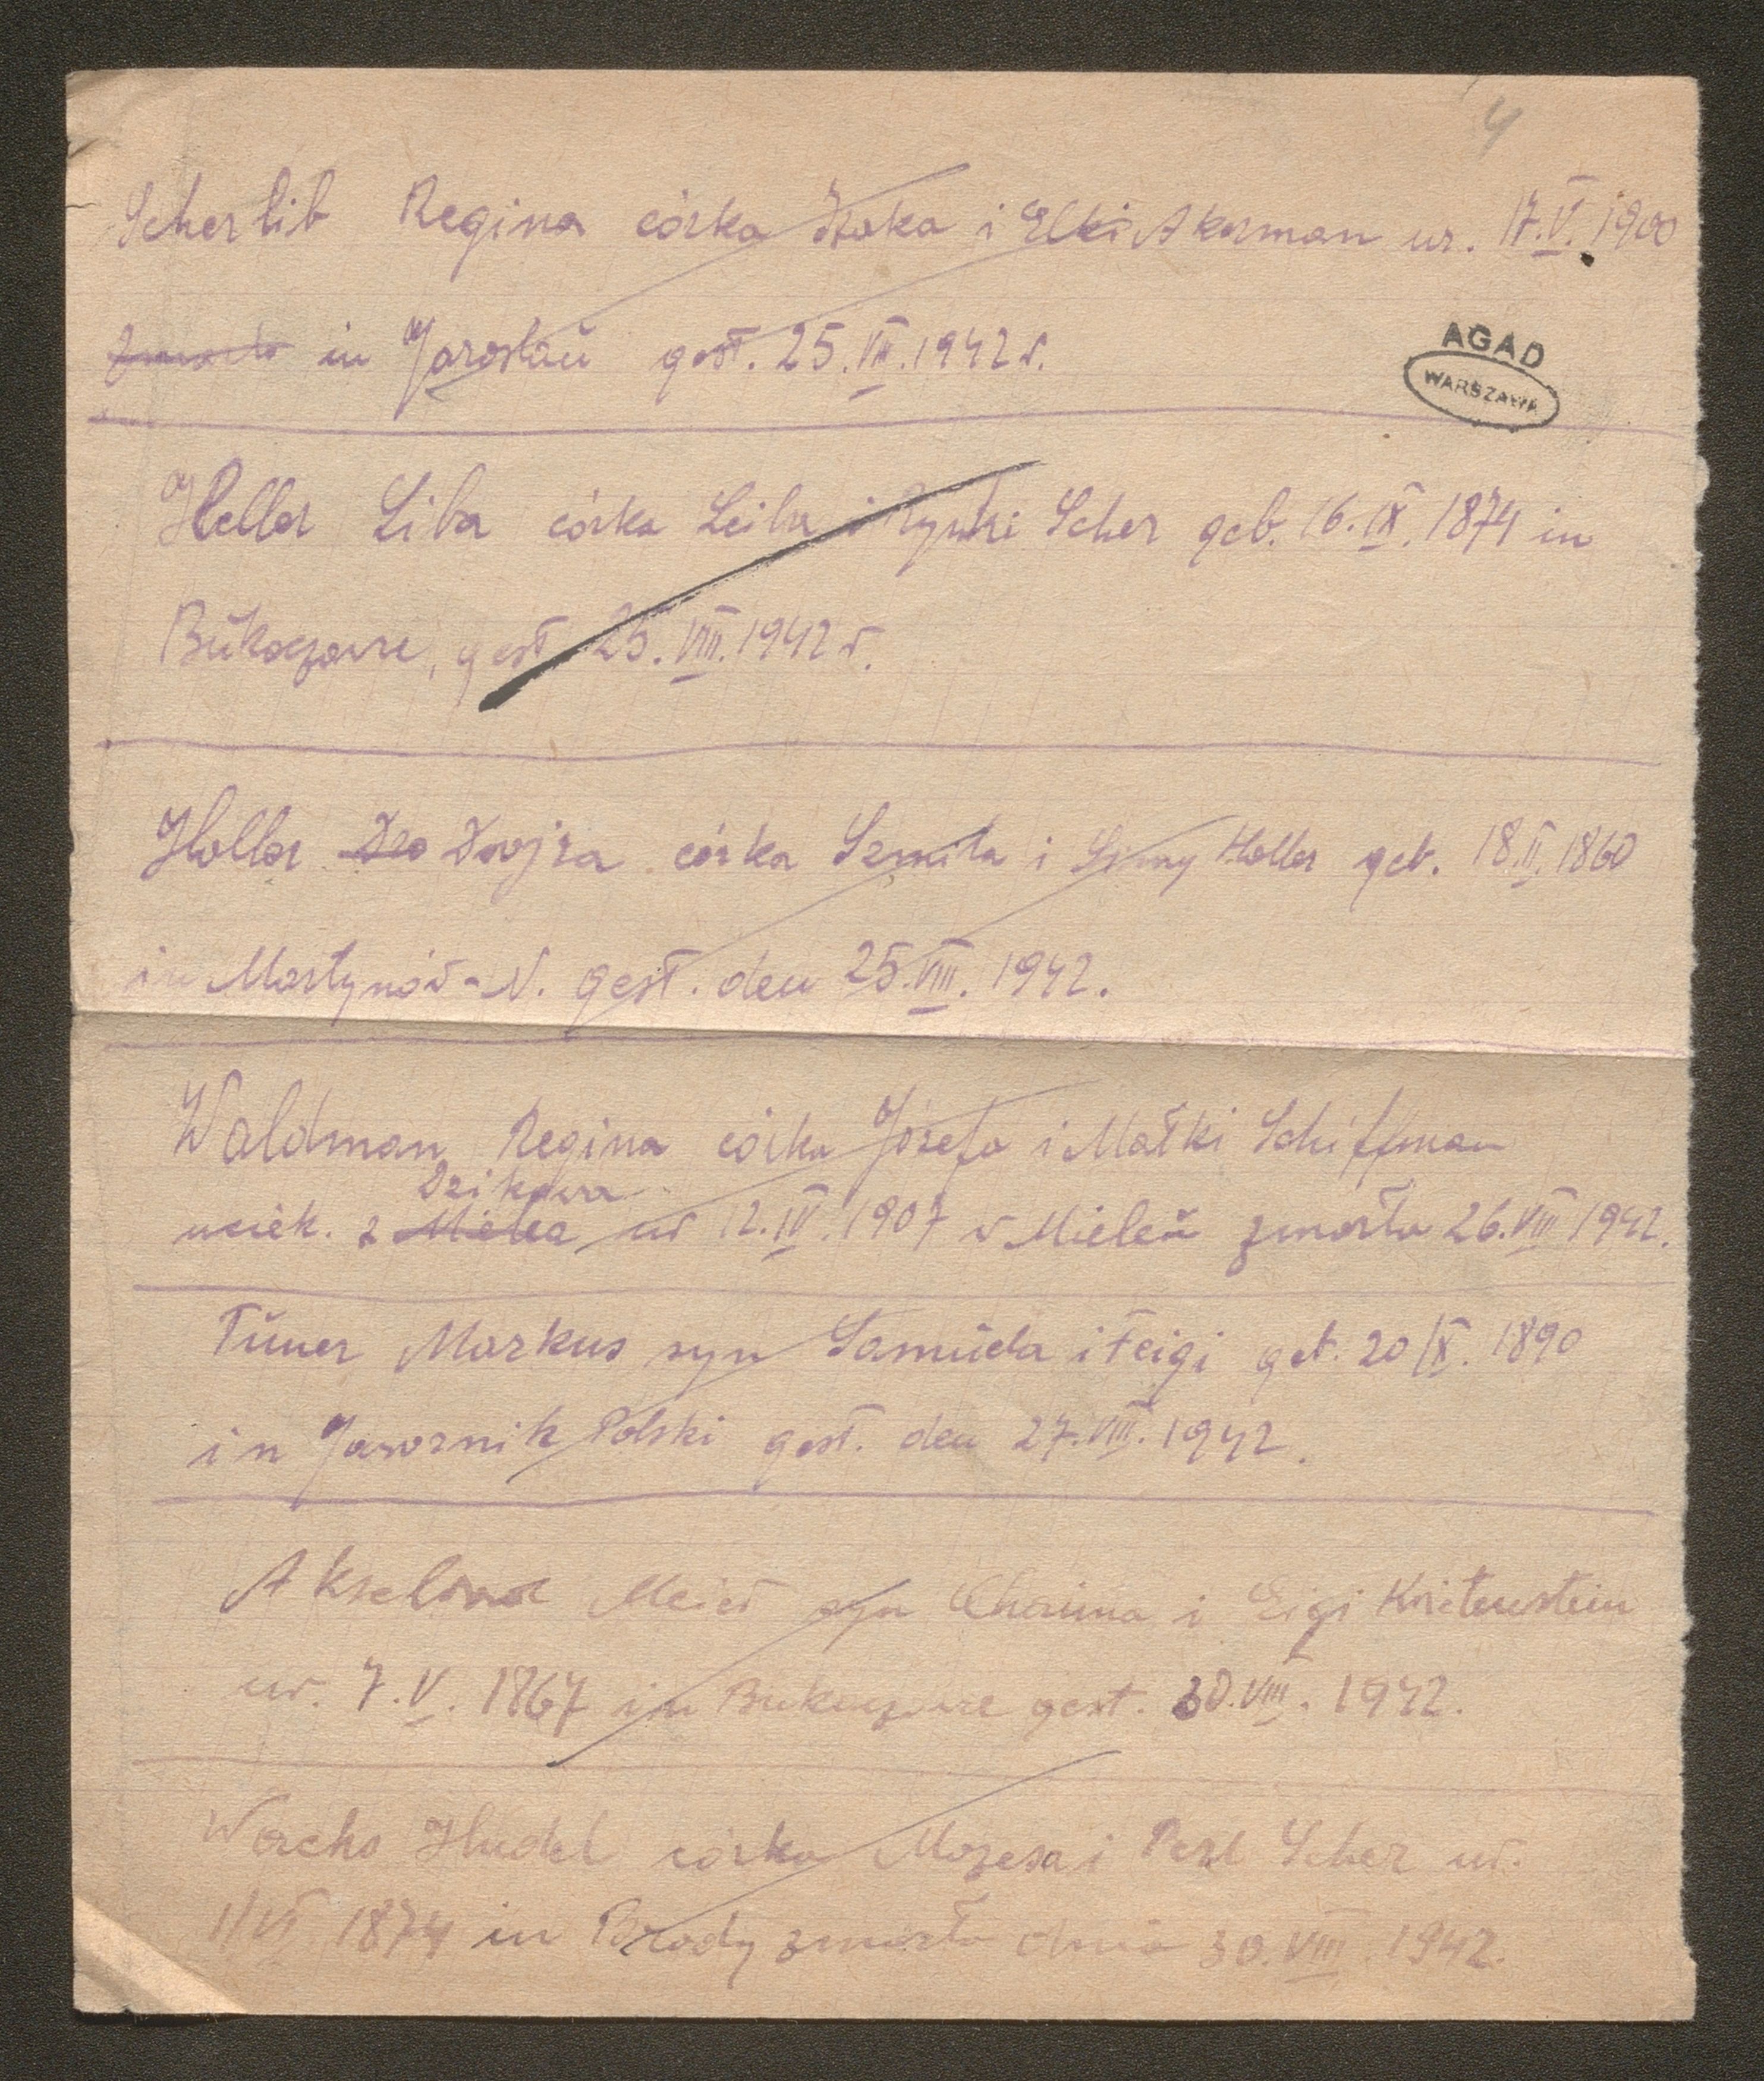 4
Scherlib Regina córka Izaka i Elki Akerman ur. 17.V.1900
in Jaroslau gest. 25.VIII.1942 r.
AGAD
WARSZAWA
Heller Liba córka Leiba i Scher geb. 16.IX.1874 in
gest. 25.VIII.1942 r.
Holler Dwojra córka Szmila i Holler geb. 18.II.1860
in Martynów-N. gest. den 25.VIII.1942.
Waldman Regina córka Józefa i Matki Schiffman
Dzikowa
uciek. z Mielca ur 12.IV.1907 w Mieleü zmarła 26.VIII 1942.
Tüner Markus syn Samüela i Feigi geb. 20/IX.1890
in Jawornik Polski gest. den 27.VIII.1942.
Akselrad Meier syn Chaima i Eigi
ur. 7.V.1867 in gest. 30.VIII.1942.
Hudel córka Mozesa i Perl Scher ur.
1/VI 1874 in Brody zmarła dnia 30.VIII.1942.